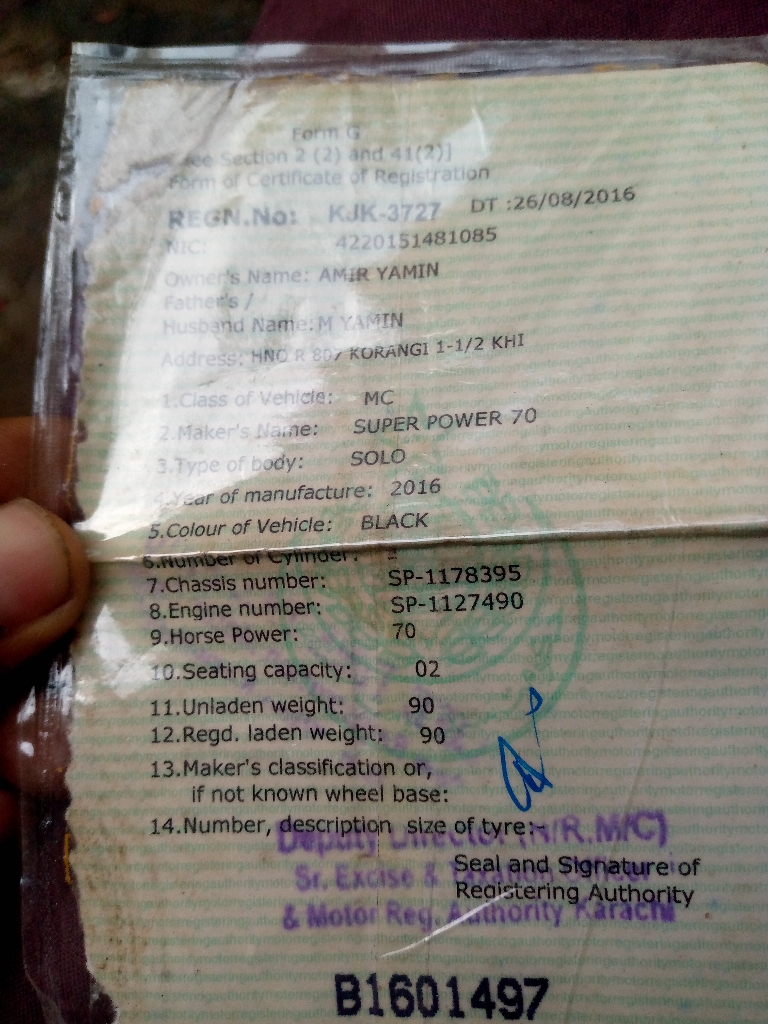 Form G
See Section 2 (2) and 41(2)]
Form of Certificate of Registration
REGN.No: KJK-3727 DT :26/08/2016
NIC: 4220151481085
Owner's Name: AMIR YAMIN
Father's /
Husband Name: M YAMIN
Address: HNO R 807 KORANGI 1-1/2 KHI
1.Class of Vehicle: MC
2.Maker's Name: SUPER POWER 70
3.Type of body: SOLO
4.Year of manufacture: 2016
5.Colour of Vehicle: BLACK
6.Number of Cylinder:
7.Chassis number: SP-1178395
8.Engine number: SP-1127490
9.Horse Power: 70
10.Seating capacity: 02
11.Unladen weight: 90
12.Regd. laden weight: 90
13.Maker's classification or,
if not known wheel base:
14.Number, description size of tyre:-
Deputy Director (R/R.M/C)
Seal and Signature of
Sr. Excise &
Registering Authority
& Motor Reg. Authority Karachi
B1601497